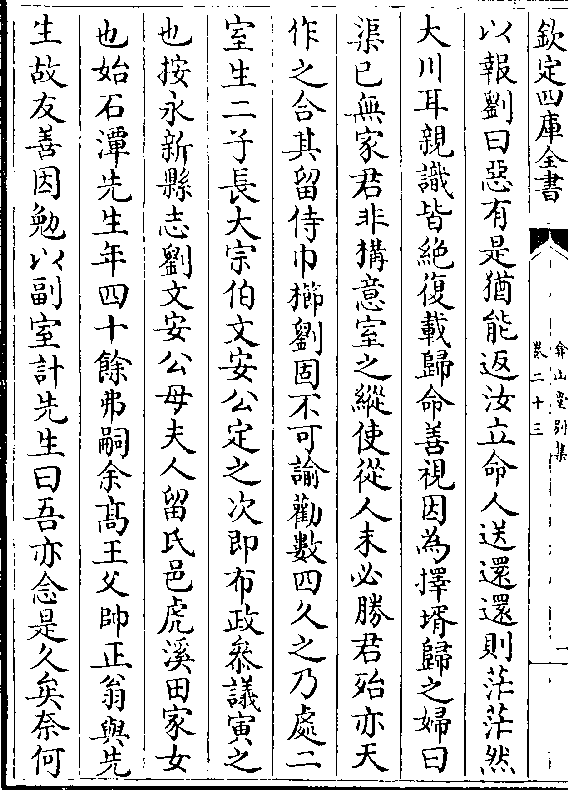 欽定四庫全書
弇山堂别集
卷二十三
以報劉曰惡有是猶能返汝立命人送還還則茫茫然
大川耳親識皆絶復載歸命善視因為擇壻歸之婦曰
渠已無家君非搆意室之縱使從人未必勝君殆亦天
作之合其留侍巾櫛劉固不可諭勸數四久之乃處二
室生二子長大宗伯文安公定之次即布政叅議寅之
也按永新縣志劉文安公母夫人留氏邑虎溪田家女
也始石潭先生年四十餘弗嗣余髙王父帥正翁與先
生故友善因勉以副室計先生曰吾亦念是久矣奈何